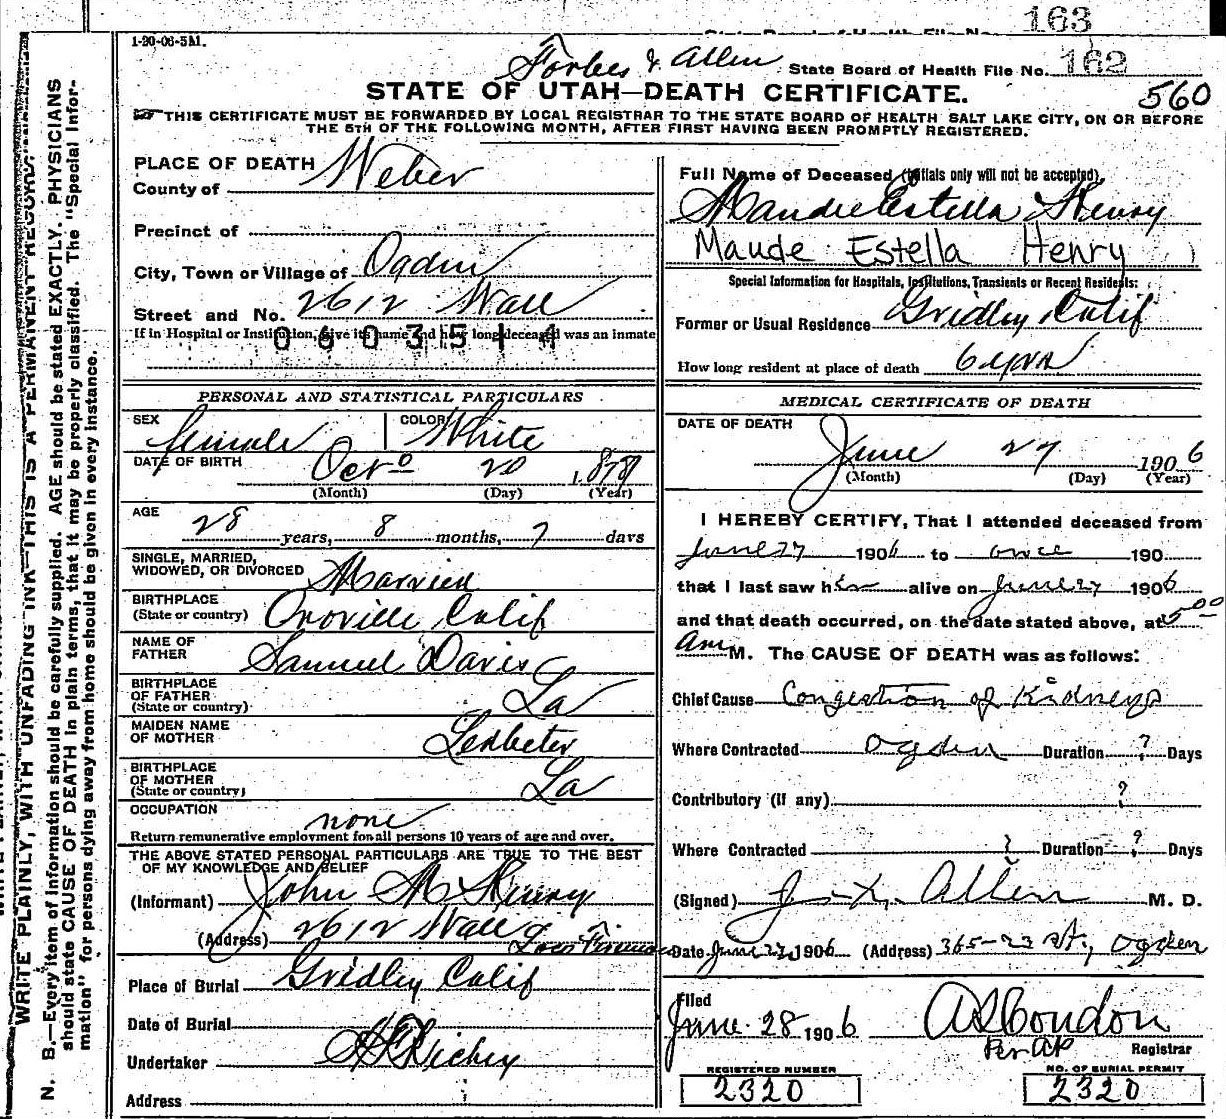 163
1-20-06-5M.
Forbes & Allen
State Board of Health File No. 162
STATE OF UTAH—DEATH CERTIFICATE.
560
THIS CERTIFICATE MUST BE FORWARDED BY LOCAL REGISTRAR TO THE STATE BOARD OF HEALTH SALT LAKE CITY, ON OR BEFORE
THE 5TH OF THE FOLLOWING MONTH, AFTER FIRST HAVING BEEN PROMPTLY REGISTERED.
WRITE PLAINLY, WITH UNFADING INK—THIS IS A PERMANENT RECORD.
N. B.—Every item of information should be carefully supplied. AGE should be stated EXACTLY. PHYSICIANS
should state CAUSE OF DEATH in plain terms, that it may be properly classified. The "Special Infor-
mation" for persons dying away from home should be given in every instance.
PLACE OF DEATH
County of Weber
Precinct of
City, Town or Village of Ogden
Street and No. 2612 Wall
If in Hospital or Institution, give its name and how long deceased was an inmate
0603511
PERSONAL AND STATISTICAL PARTICULARS
SEX female COLOR White
DATE OF BIRTH Oct 20 1879
(Month) (Day) (Year)
AGE
28 years, 8 months, 7 days
SINGLE, MARRIED,
WIDOWED, OR DIVORCED Married
BIRTHPLACE
(State or country) Oroville Calif
NAME OF
FATHER Samuel Davis
BIRTHPLACE
OF FATHER
(State or country) La
MAIDEN NAME
OF MOTHER Ledbeter
BIRTHPLACE
OF MOTHER
(State or country) La
OCCUPATION none
Return remunerative employment for all persons 10 years of age and over.
THE ABOVE STATED PERSONAL PARTICULARS ARE TRUE TO THE BEST
OF MY KNOWLEDGE AND BELIEF
(Informant) John M Henry
(Address) 2612 Wall
Place of Burial Gridley Calif
Date of Burial
Undertaker
Address
Full Name of Deceased (Initials only will not be accepted),
Maude Estella Henry
Maude Estella Henry )
Special Information for Hospitals, Institutions, Transients or Recent Residents:
Former or Usual Residence Gridley Calif
How long resident at place of death 6 yrs
MEDICAL CERTIFICATE OF DEATH
DATE OF DEATH
June 27 1906
(Month) (Day) (Year)
I HEREBY CERTIFY, That I attended deceased from
June 27 1906 to once 190
that I last saw her alive on June 27 1906
and that death occurred, on the date stated above, at 5 00
Am M. The CAUSE OF DEATH was as follows:
Chief Cause Congestion of Kidneys
Where Contracted Ogden Duration ? Days
Contributory (if any) ?
Where Contracted ? Duration ? Days
(Signed) Allen M. D.
Date June 27 1906 (Address) 365-23 St., Ogden
Filed
June 28 1906 Condon
Per AP Registrar
REGISTERED NUMBER
2320
NO. OF BURIAL PERMIT
2320